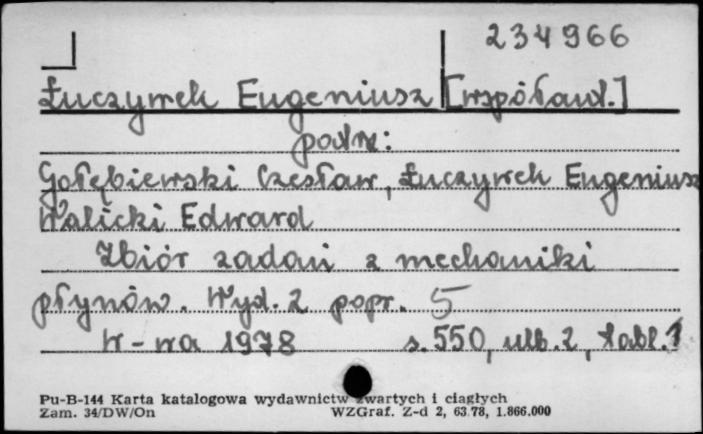 234966
Łuczywek Eugeniusz [współaut.]
patrz:
Gołębiewski Czesław, Łuczywek Eugeniusz
Walicki Edward
Zbiór zadań z mechaniki
płynów. Wyd. 2 popr. 5
W-wa 1978 s. 550, ulb. 2, tabl. 1
Pu-B-144 Karta katalogowa wydawnictw zwartych i ciągłych
Zam. 34/DW/On WZGraf. Z-d 2, 63.78, 1.866.000